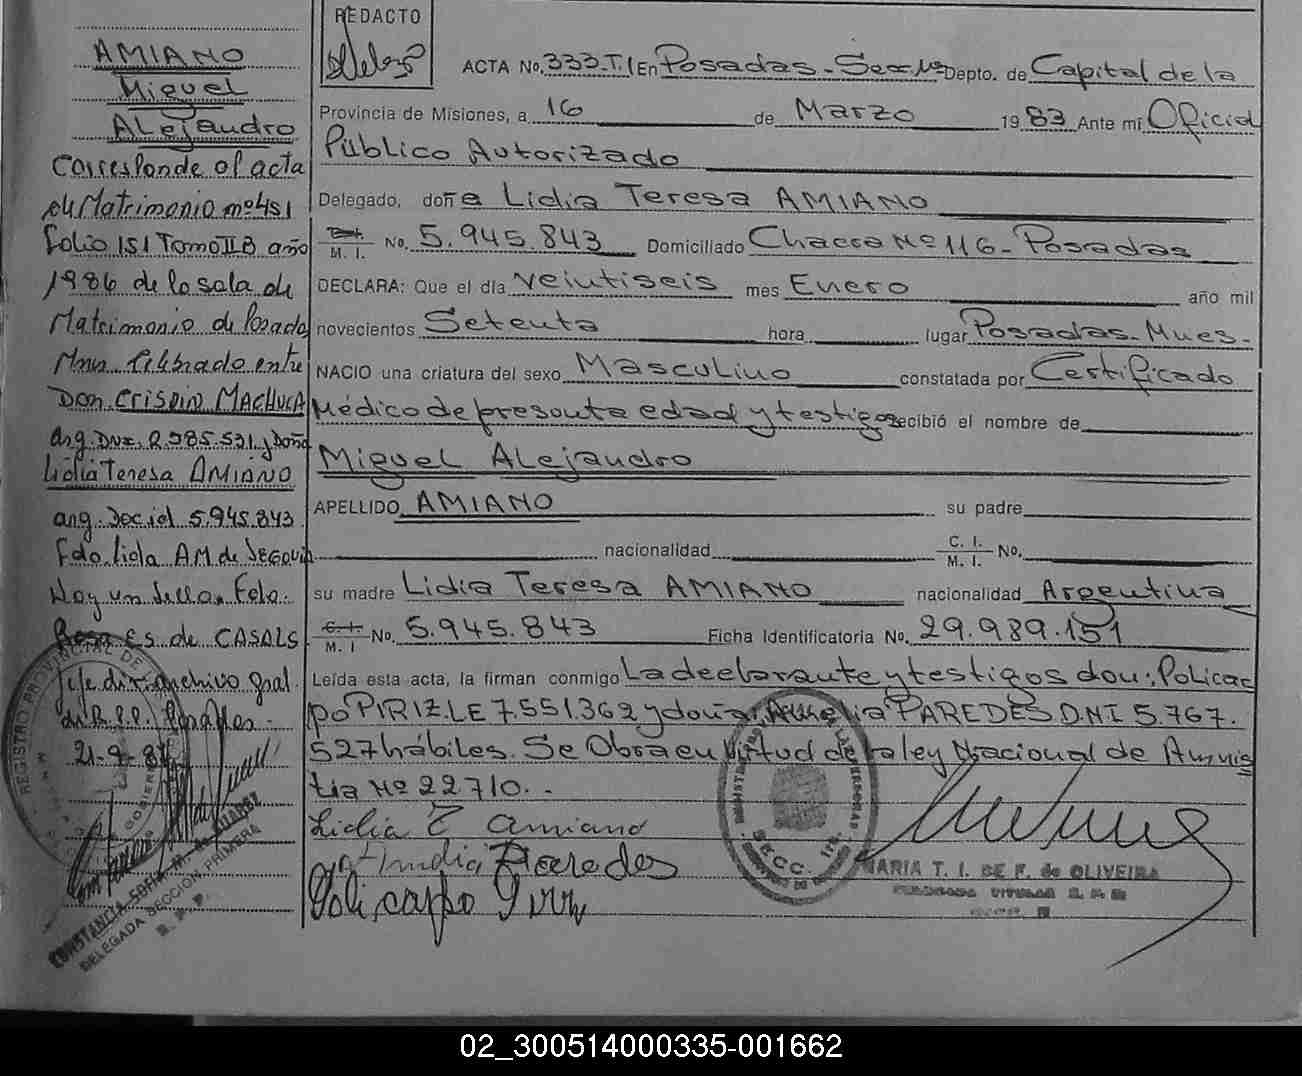 AMIANO
Miguel
ALejandro
Corresponde al acta
de Matrimonio nº 451
Folio 151 Tomo II B año
1986 de la sala de
Matrimonio de Posadas
Mnes. Celebrado entre
Don. CRISPIN MACHUCA
arg. DNI. 2.985.531. y Doña
Lidia Teresa AMIANO
arg. Doc. id 5.945.843.
Fdo. Lidia AM de SEGOVIA
Hay un sello. Fdo.
Rosa Es de CASALS
Jefe div. archivo gral
de R.P.P. Posadas.
21-9-87
REGISTRO PROVINCIAL DE
CONSTANCIA SOFIA M. de SUAREZ
DELEGADA SECCION PRIMERA
REDACTO
ACTA No. 333-T.I En Posadas-Secc. 1ª Depto. de Capital de la
Provincia de Misiones, a 16 de Marzo 1983 Ante mí Oficial
Público Autorizado
Delegado, doña Lidia Teresa AMIANO
M. I. No. 5.945.843 Domiciliado Chacra Nº 116- Posadas
DECLARA: Que el día veintiseis mes Enero año mil
novecientos Setenta hora lugar Posadas-Mnes-
NACIO una criatura del sexo Masculino constatada por Certificado
Médico de presunta edad y testigos recibió el nombre de
Miguel ALejandro
APELLIDO AMIANO su padre
nacionalidad C. I. M. I. No.
su madre Lidia Teresa AMIANO nacionalidad Argentina
C. I. M. I No. 5.945.843 Ficha Identificatoria No. 29.989.151
Leída esta acta, la firman conmigo La declarante y testigos don: Policar
po PIRIZ. LE 7.551.362 y doña PAREDES D.N.I 5.767.
527 hábiles. Se Obra en Virtud de la ley Nacional de Amnis
tia Nº 22710. -
Lidia T Amiano
Paredes
Policarpo Piriz
SECC. 1ra.
MARIA T. I. DE F. de OLIVEIRA
02_300514000335-001662